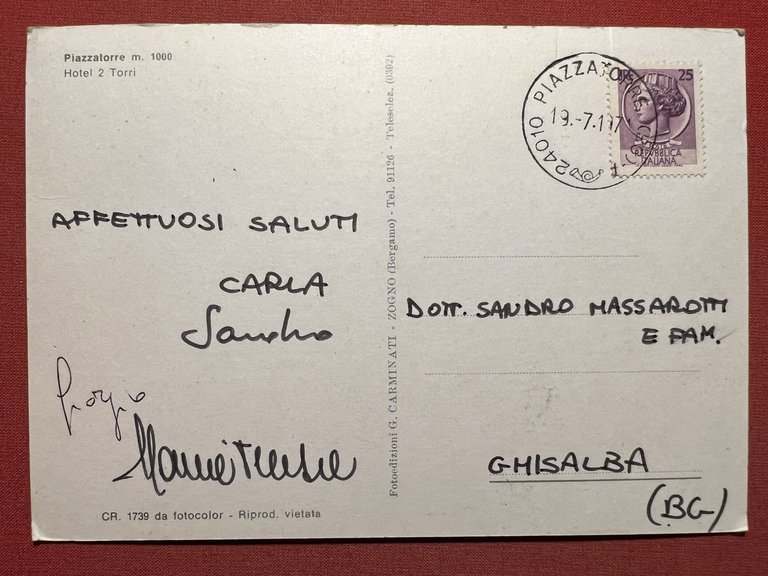 Piazzatorre m. 1000
Hotel 2 Torri
AFFETTUOSI SALUTI
CARLA
Sandro
Giorgio
CR. 1739 da fotocolor - Riprod. vietata
Fotoedizioni G. CARMINATI - ZOGNO (Bergamo) - Tel. 91126 - Teleselez. (0392)
24010 PIAZZATORRE
19.-7.197
25
REPUBBLICA
ITALIANA
DOTT. SANDRO MASSAROTTI
E FAM.
GHISALBA
(BG)